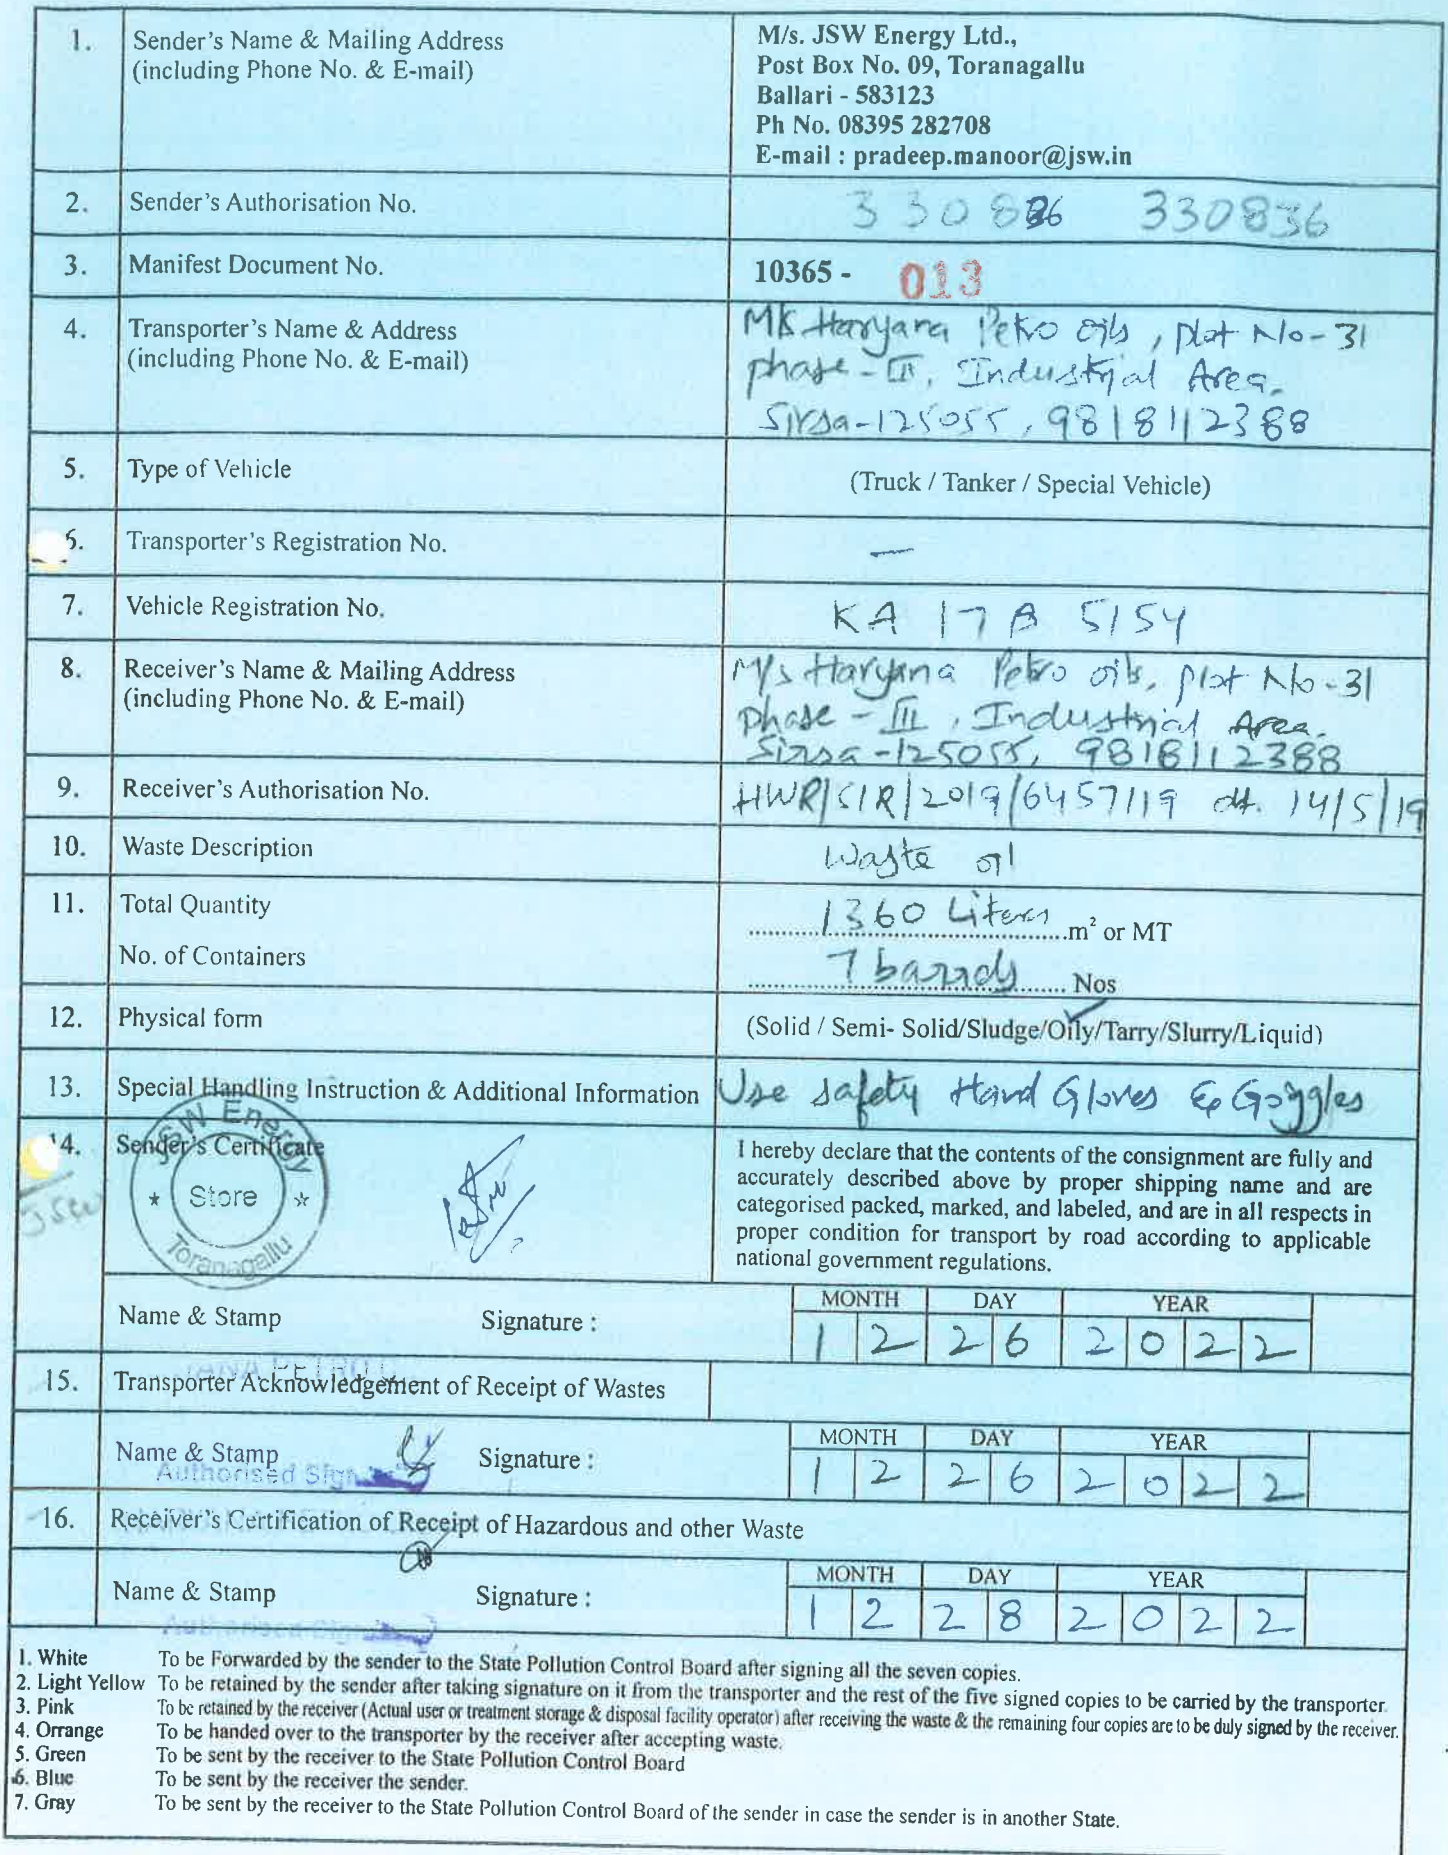 1. Sender's Name & Mailing Address
(including Phone No. & E-mail)
M/s. JSW Energy Ltd.,
Post Box No. 09, Toranagallu
Ballari - 583123
Ph No. 08395 282708
E-mail : pradeep.manoor@jsw.in
2. Sender's Authorisation No. 330836 330836
3. Manifest Document No. 10365 - 013
4. Transporter's Name & Address
(including Phone No. & E-mail)
M/s Haryana Petro oils, plot No-31
phase-III, Industrial Area.
Sirsa-125055, 9818112388
5. Type of Vehicle (Truck / Tanker / Special Vehicle)
6. Transporter's Registration No. —
7. Vehicle Registration No. KA 17 B 5154
8. Receiver's Name & Mailing Address
(including Phone No. & E-mail)
M/s Haryana Petro oils, plot No-31
phase - III, Industrial Area.
Sirsa-125055, 9818112388
9. Receiver's Authorisation No. HWR/SIR/2019/6457119 dt. 14/5/19
10. Waste Description Waste oil
11. Total Quantity 1360 Liters m² or MT
No. of Containers 7 barrels Nos
12. Physical form (Solid / Semi- Solid/Sludge/Oily/Tarry/Slurry/Liquid)
13. Special Handling Instruction & Additional Information Use safety Hand Gloves & Goggles
14. Sender's Certificate
JSW Energy
★ Store ★
Toranagallu
JSW
I hereby declare that the contents of the consignment are fully and
accurately described above by proper shipping name and are
categorised packed, marked, and labeled, and are in all respects in
proper condition for transport by road according to applicable
national government regulations.
Name & Stamp Signature : MONTH DAY YEAR
12 26 2022
15. Transporter Acknowledgement of Receipt of Wastes
Name & Stamp Signature : MONTH DAY YEAR
Authorised 12 26 2022
16. Receiver's Certification of Receipt of Hazardous and other Waste
Name & Stamp Signature : MONTH DAY YEAR
Authorised 12 28 2022
1. White To be Forwarded by the sender to the State Pollution Control Board after signing all the seven copies.
2. Light Yellow To be retained by the sender after taking signature on it from the transporter and the rest of the five signed copies to be carried by the transporter.
3. Pink To be retained by the receiver (Actual user or treatment storage & disposal facility operator) after receiving the waste & the remaining four copies are to be duly signed by the receiver.
4. Orrange To be handed over to the transporter by the receiver after accepting waste.
5. Green To be sent by the receiver to the State Pollution Control Board
6. Blue To be sent by the receiver the sender.
7. Gray To be sent by the receiver to the State Pollution Control Board of the sender in case the sender is in another State.